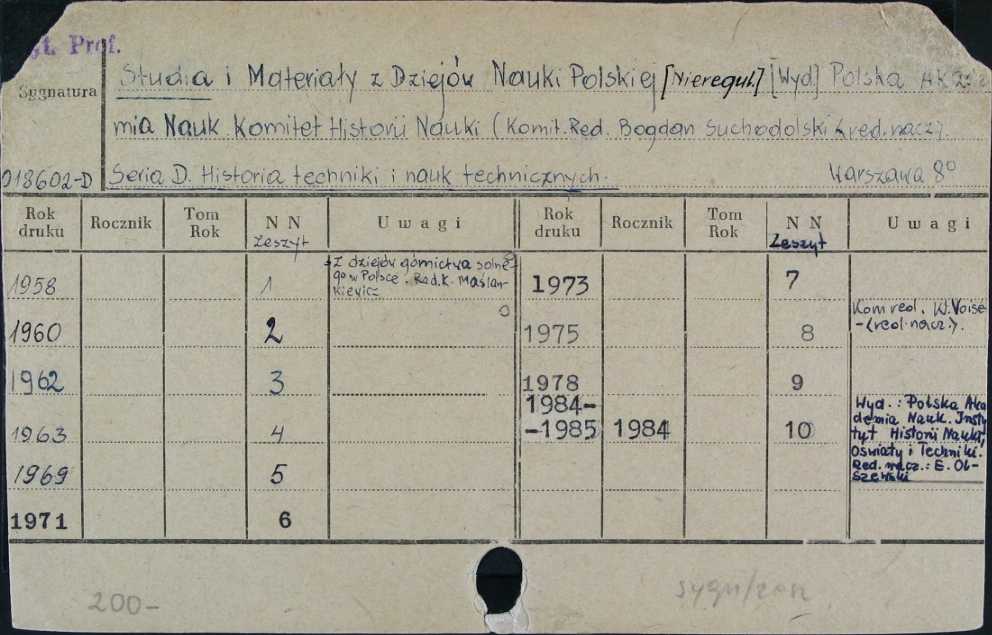 Prof.
Studia i Materiały z Dziejów Nauki Polskiej [Nieregul.] [Wyd] Polska Akade
Sygnatura
mia Nauk. Komitet Historii Nauki (Komit. Red. Bogdan Suchodolski <red. nacz>.
018602-D Seria D. Historia techniki i nauk technicznych. Warszawa 8°
Rok druku Rocznik Tom Rok N N Zeszyt Uwagi Rok druku Rocznik Tom Rok N N Zeszyt Uwagi
1958 1
z dziejów górnictwa solne-
go w Polsce. Red. K. Maślan-
kiewicz
1973 7
1960 2
1975 8
Kom red. W. Voisé
- <red. nacz.>.
1962 3
1978 9
1963 4
1984-
-1985 1984 10
Wyd.: Polska Aka
demia Nauk. Insty
tyt Historii Nauki,
Oświaty i Techniki.
Red. nacz.: E. Ol-
szewski
1969 5
1971 6
200-